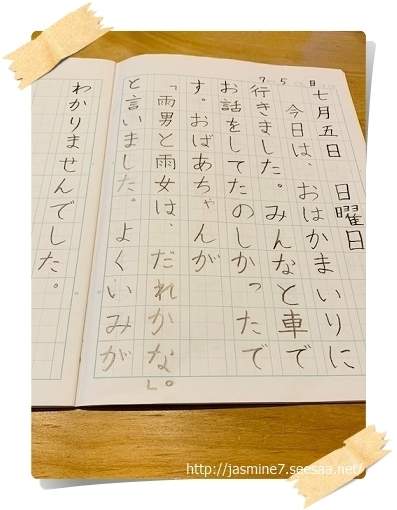 7 5 日
七月五日 日曜日
今日は、おはかまいりに
行きました。みんなと車で
お話をしてたのしかったで
す。おばあちゃんが
「雨男と雨女は、だれかな」。
と言いました。よくいみが
わかりませんでした。
http://jasmine7.seesaa.net/